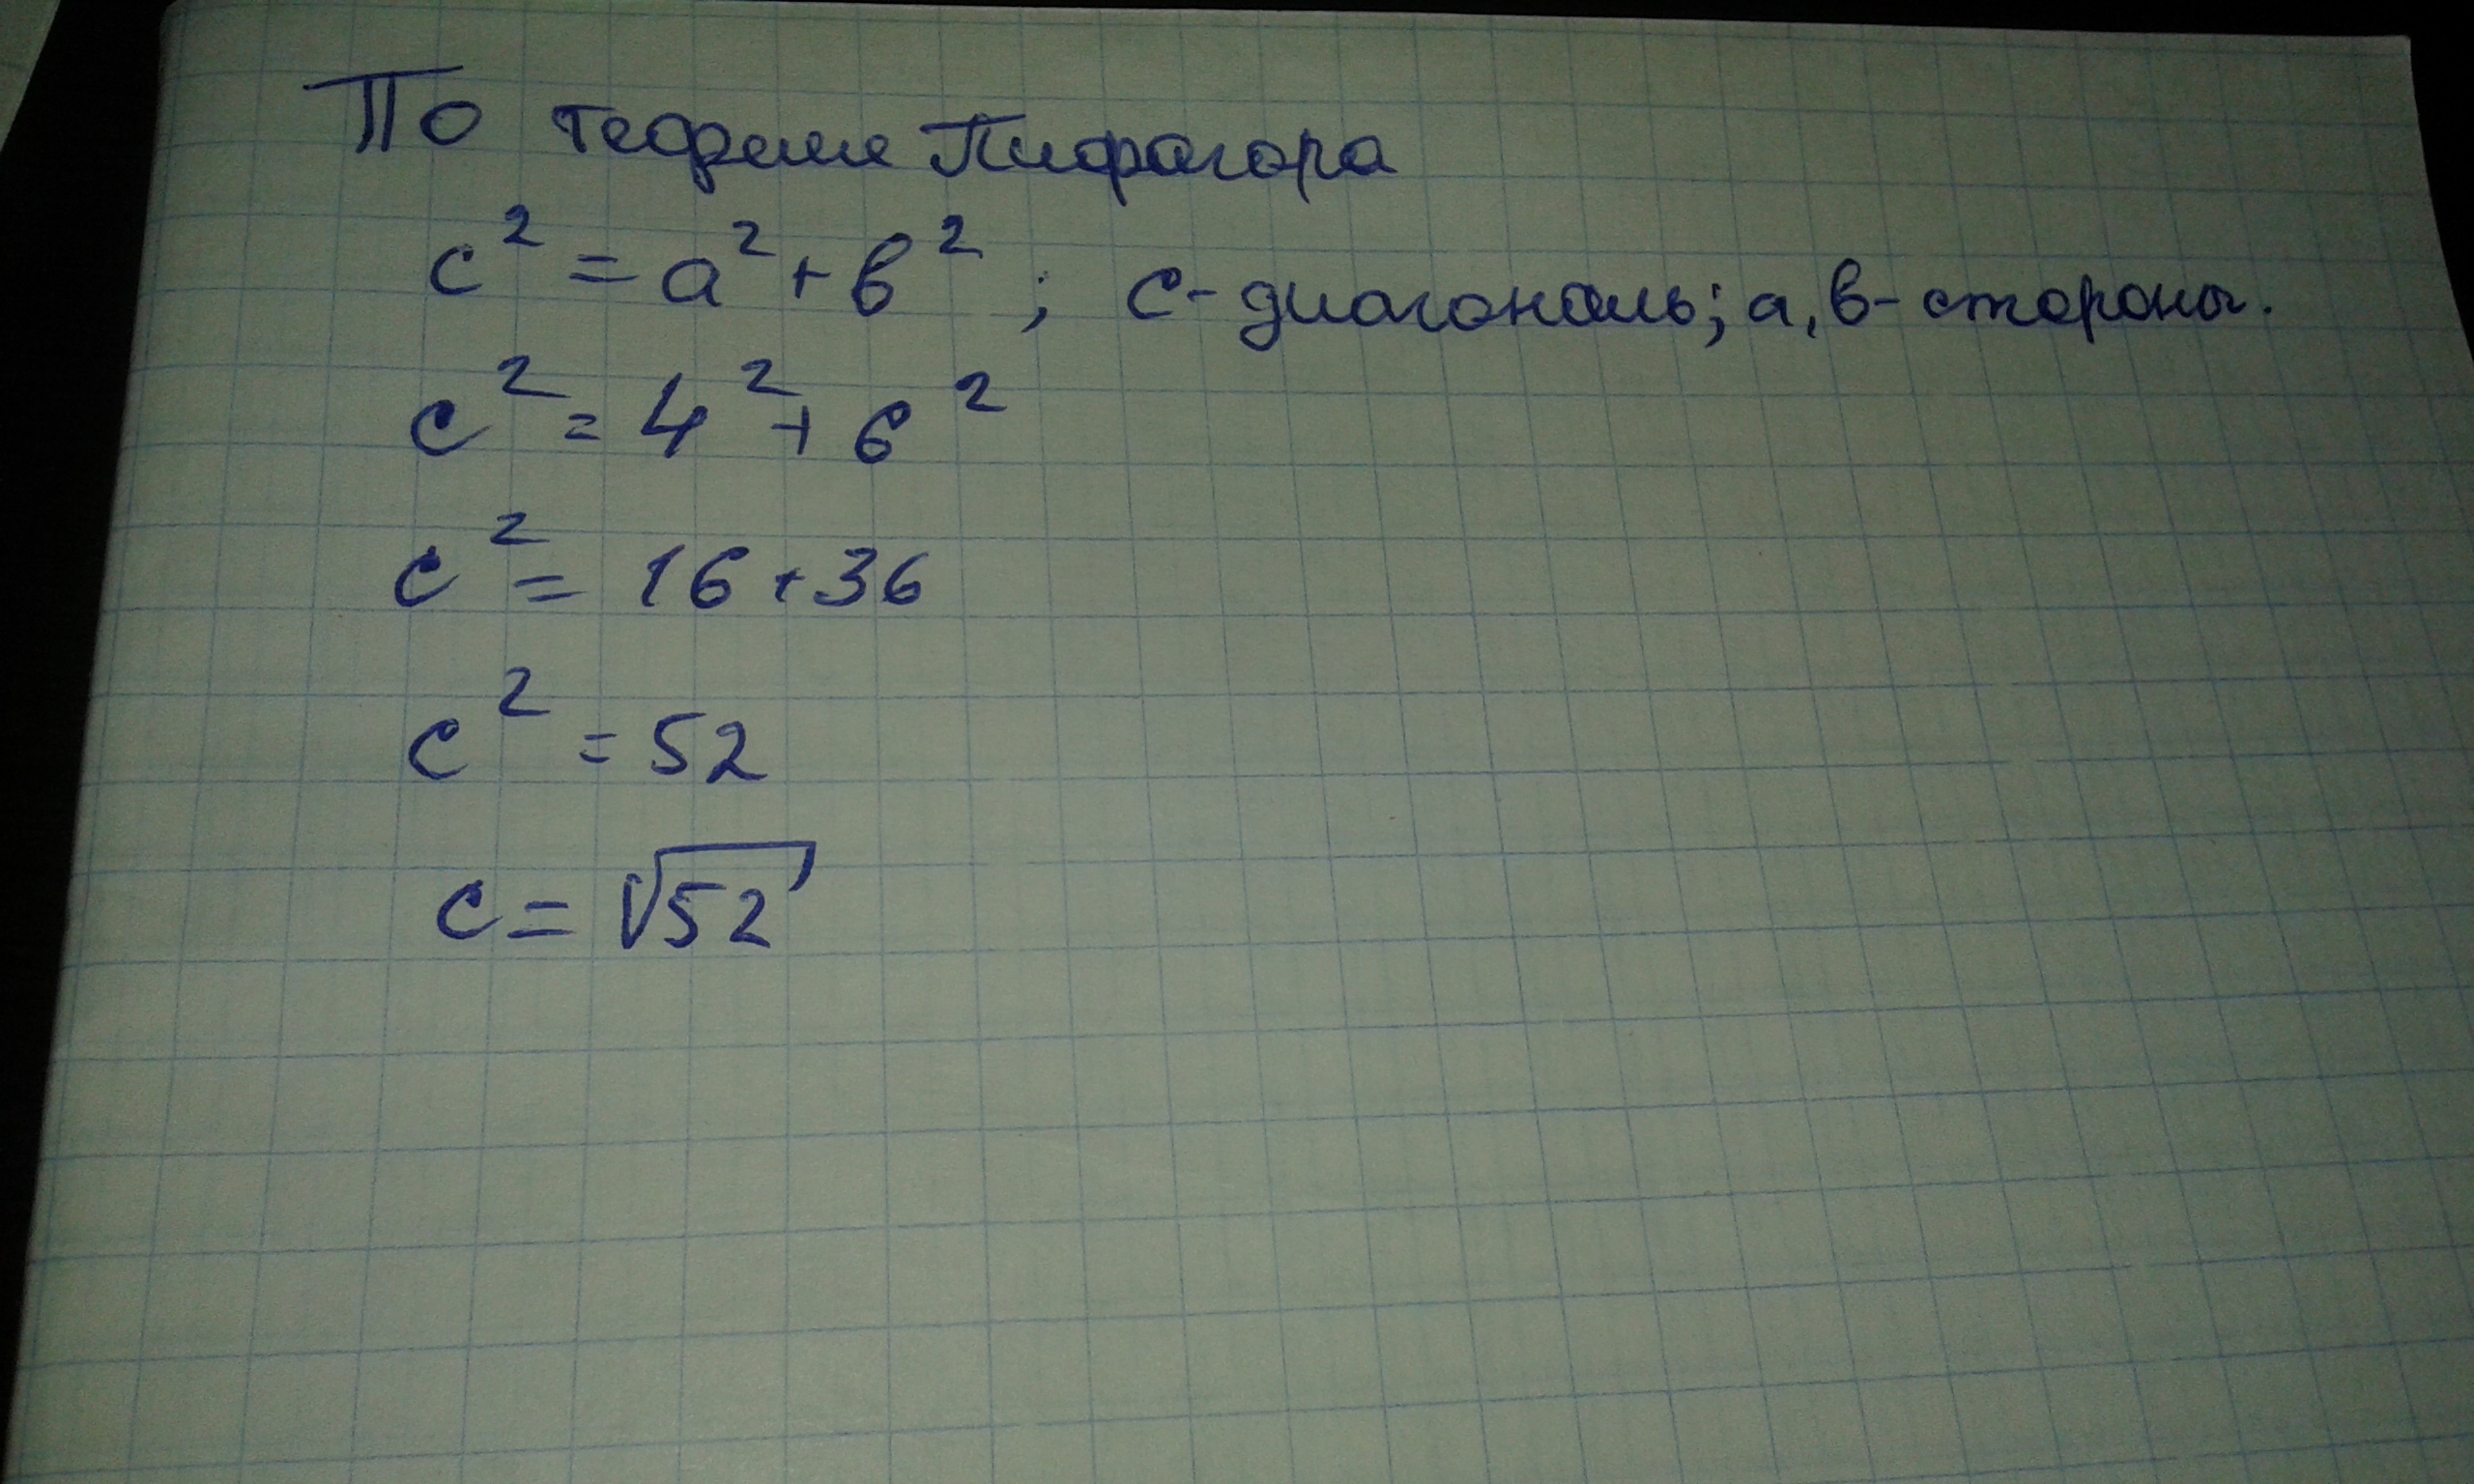 По теореме Пифагора
c² = a² + в² ; с - диагональ; а, в - стороны.
c² = 4² + 6²
c² = 16 + 36
c² = 52
c = √52